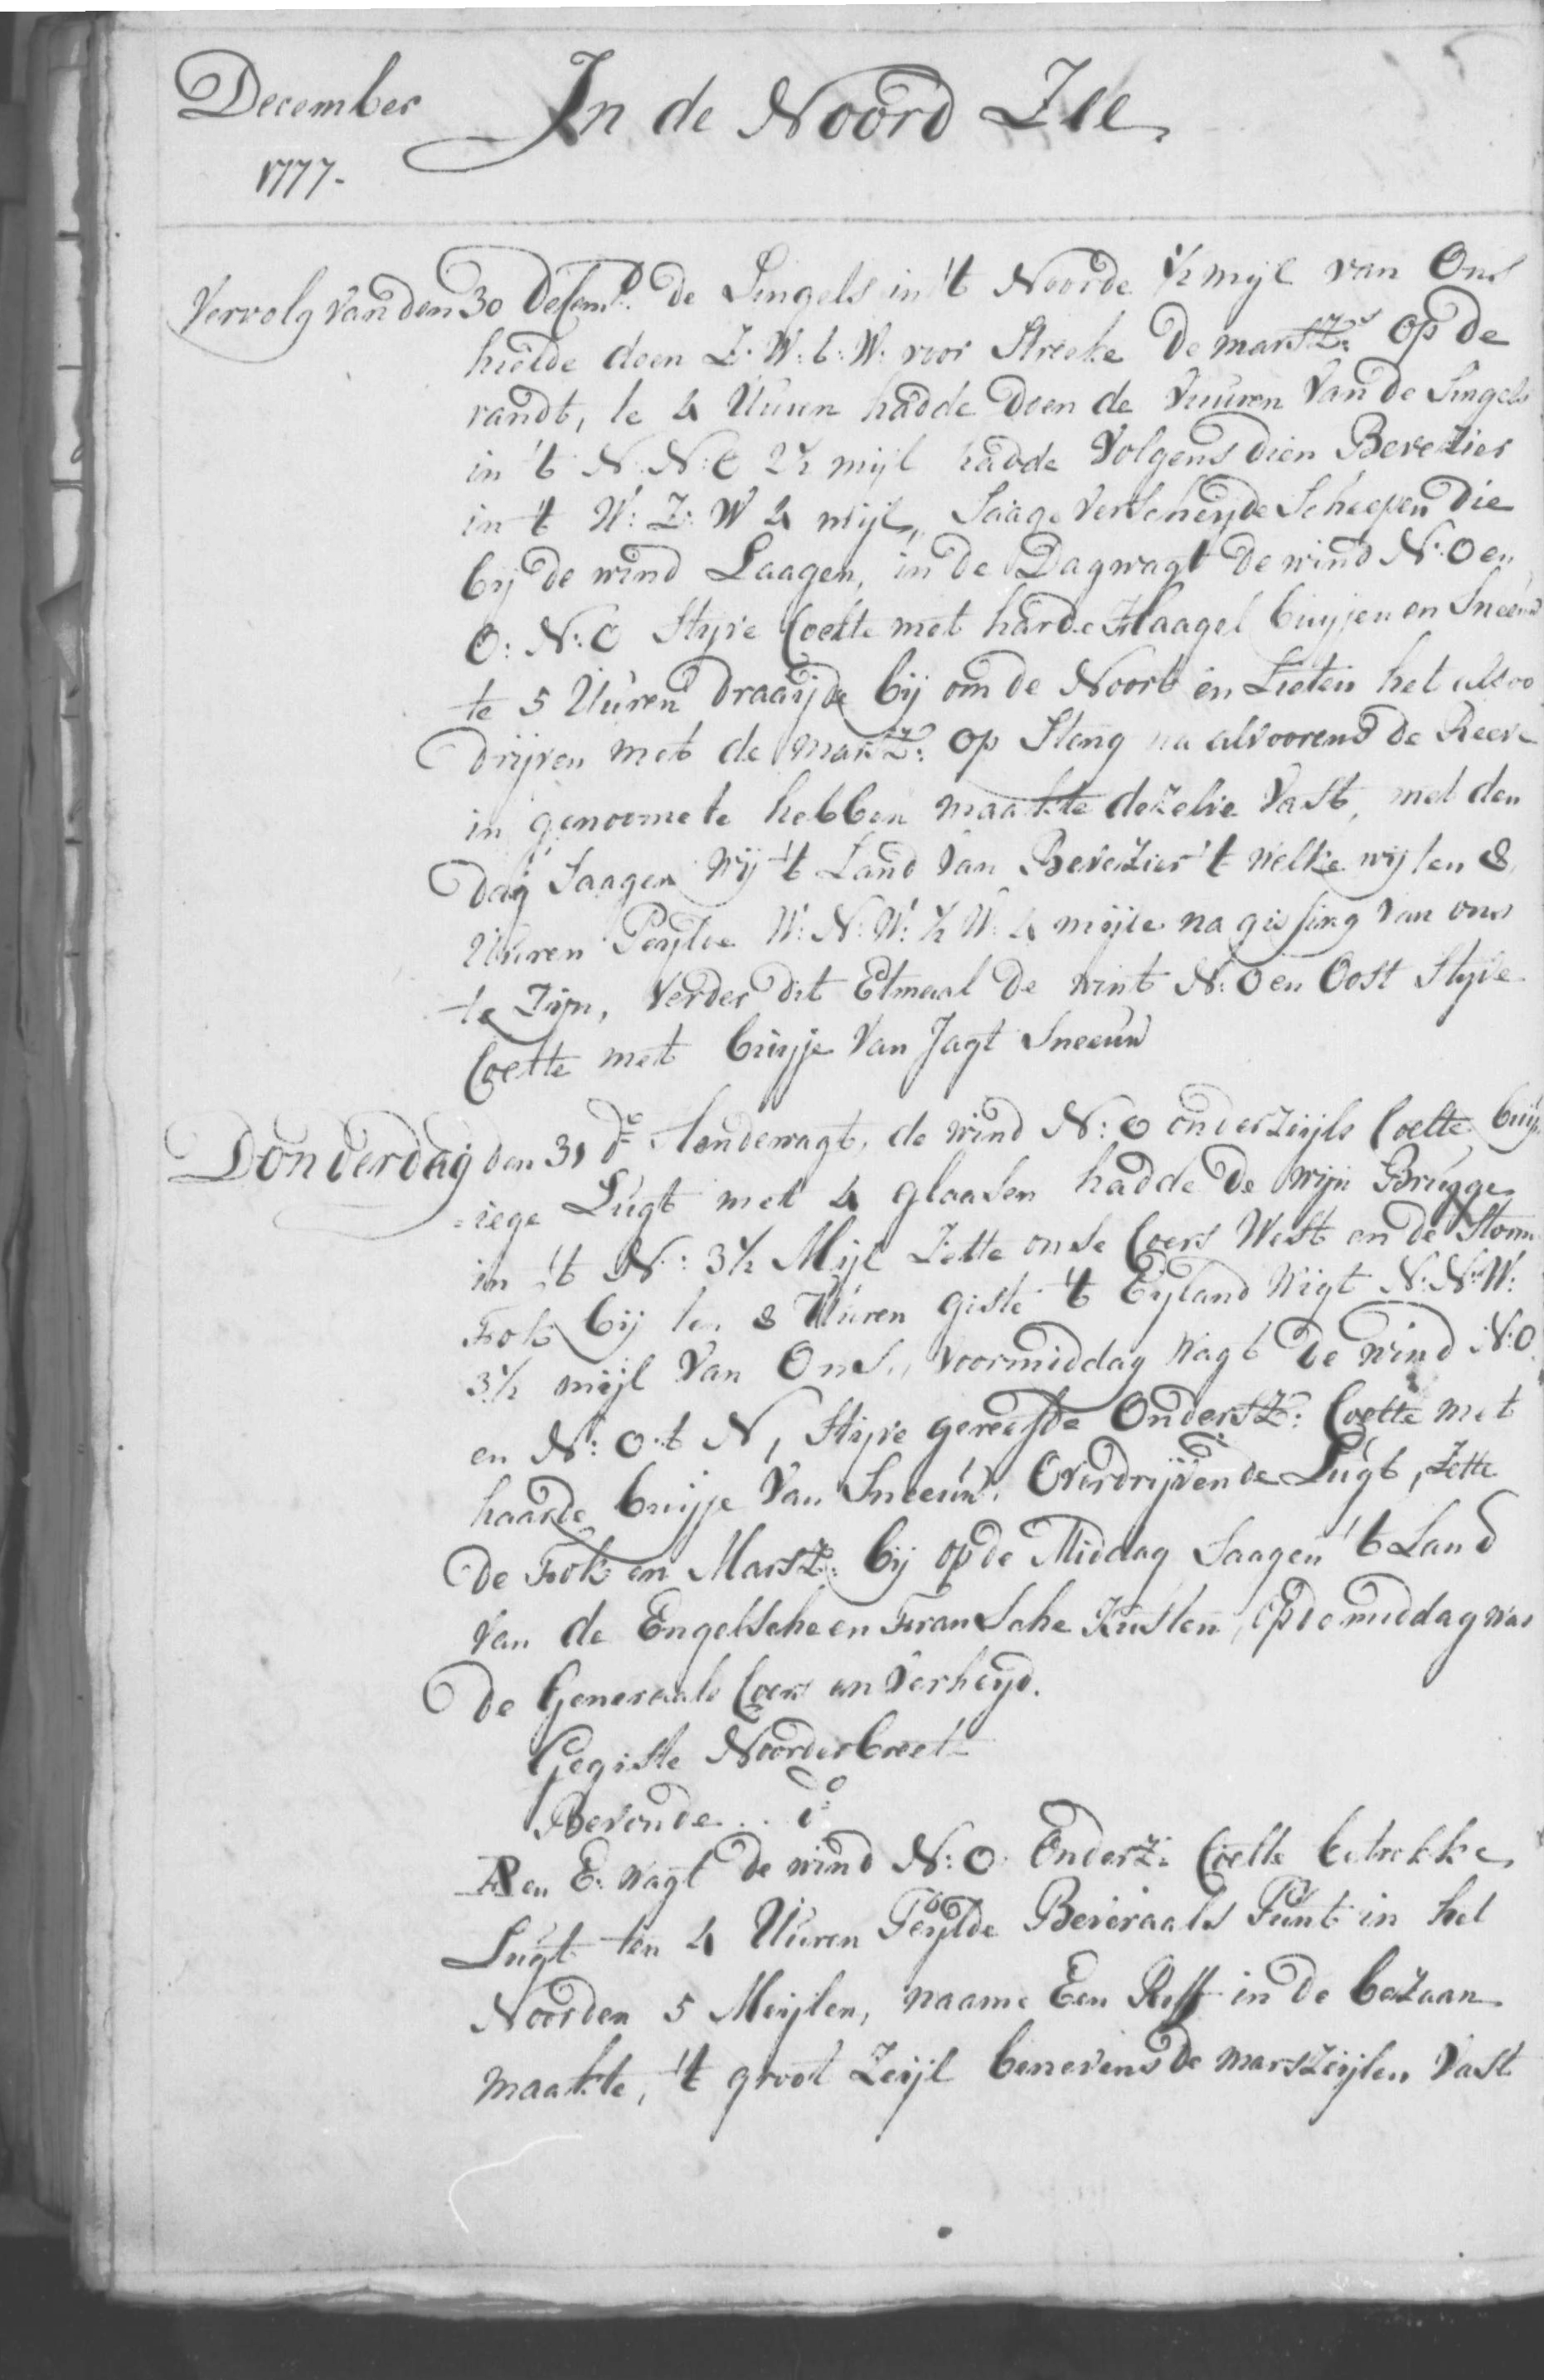 December
1777.
In de Noord Zee
Vervolg van den 30 Decemb. de Singels in 't Noorde ½ mijl van Ons
hielde doen Z. W. t: W: voor Streeke De marsZs. op de
randt, te 4 Uuren hadde doen de Vuuren Van de Singels
in 't N. N: O 2½ mijl hadde Volgens dien Bevezier
in 't W: Z: W 4 mijl, Saage Verscheijde Scheepen Die
bij de wind Laagen, in de Dagwagt De wind N: O en
O: N: O Styve Coelte met harde Haagel buijen en Sneeuw
te 5 Uuren Draaijde bij om de Noort en Lieten het alsoo
Drijven met de marsZ: op Steng na alvoorens De Reeve
in genoome te hebben maakte dezelve Vast, met den
Dag Saagen Wij 't Land Van Bevezier 't Welke wij ten 8
Uuren Peylde W: N: W: ½ W: 4 mijle na gissing Van ons
te Zijn, Verder dit Etmaal De wint N: O en Oost Styve
Coelte met buijje Van Jagt Sneeuw
Donderdag den 31 de: hondewagt, de wind N: O onderzeijls Coelte buij
=iege Lugt met 4 glaasen hadde De Wijn Brugge
in 't N: 3½ Mijl Zette onse Coers West en de Storm
Fok bij ten 8 Uuren giste 't Eyland Wigt N: N: W:
3½ mijl Van Ons, Voormiddag Wagt De wind N: O
en N: O. t N, Styve gereefde OndersZ: Coelte met
haarde buijje Van Sneeuw, Overdrijvende Lugt, Zette
De Fok en MarsZ: bij op de Middag Saagen 't Land
Van de Engelsche en Fransche Kusten, op de middag was
De Generaale Coers en Verheyd.
Gegiste Noorderbreet
Bevonde .. do
A en E. Wagt de wind N: O. Onderz: Coelte betrokke
Lugt ten 4 Uuren Peylde Beveraals Punt in het
Noorden 5 Meijlen, naame Een Reff in de bezaan
maakte, 't groot Zeijl benevens de marszeijlen Vast